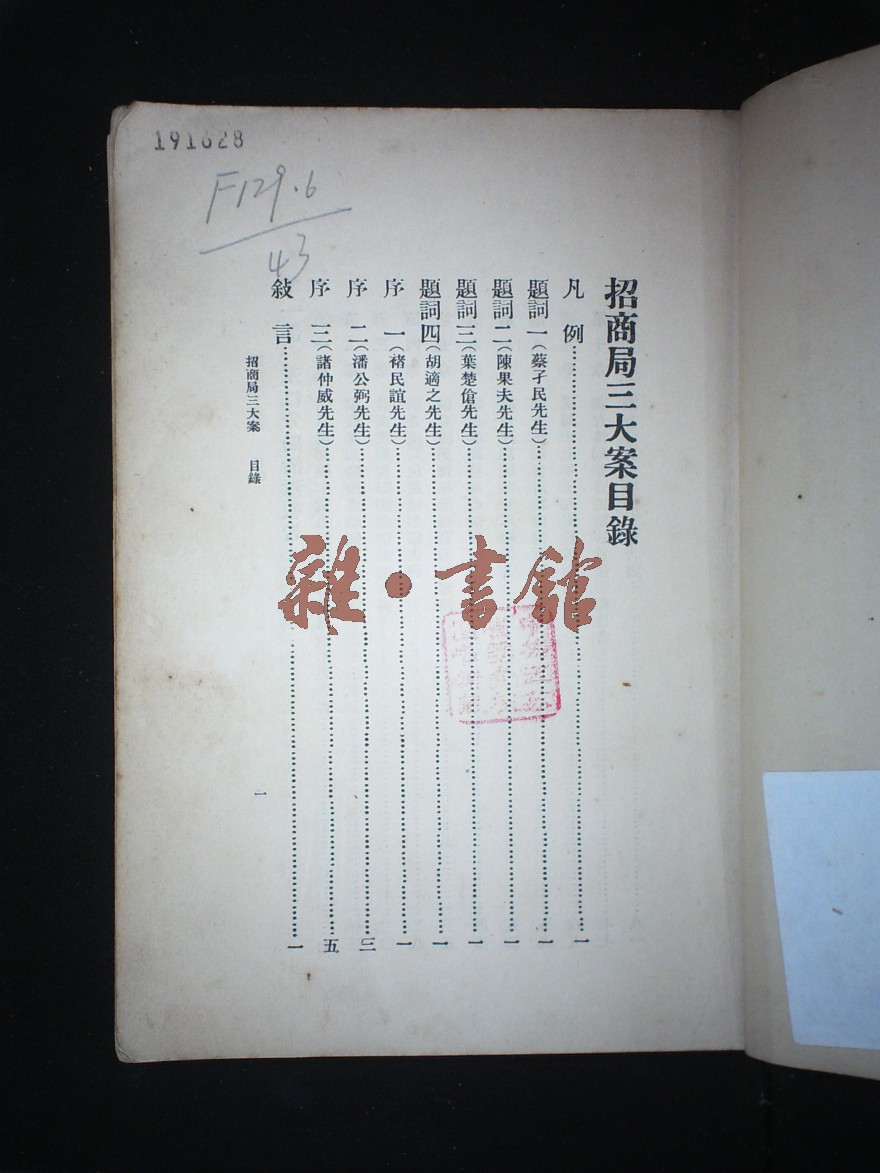 191628
F129.6
43
招商局三大案目錄
凡例……一
題詞一(蔡孑民先生)……一
題詞二(陳果夫先生)……一
題詞三(葉楚傖先生)……一
題詞四(胡適之先生)……一
序一(褚民誼先生)……一
序二(潘公弼先生)……三
序三(諸仲威先生)……五
敍言……一
招商局三大案 目錄
一
雜·書館